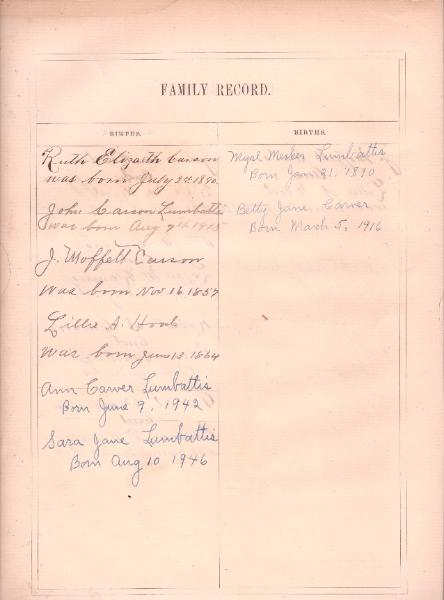 FAMILY RECORD.
BIRTHS.
Ruth Elizabeth Carson
was born July 2nd 1890.
John Carson Lumbattis
was born Aug 9th 1915
J. Moffett Carson
was born Nov 16 1857
Lillie A.
was born June 13 1864
Ann Carver Lumbattis
Born June 9, 1942
Sara Jane Lumbattis
Born Aug 10 1946
BIRTHS.
Lumbattis
Born Jan 21. 1890
Betty Jane Carver
Born March 5, 1916